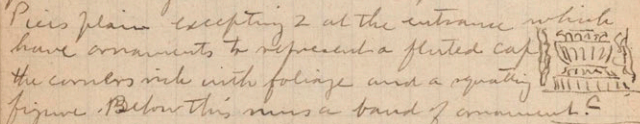 Piers plain excepting 2 at the entrance which
have ornaments to represent a fluted cap
the corners rich with foliage and a squatting
figure. Below this runs a band of ornament.